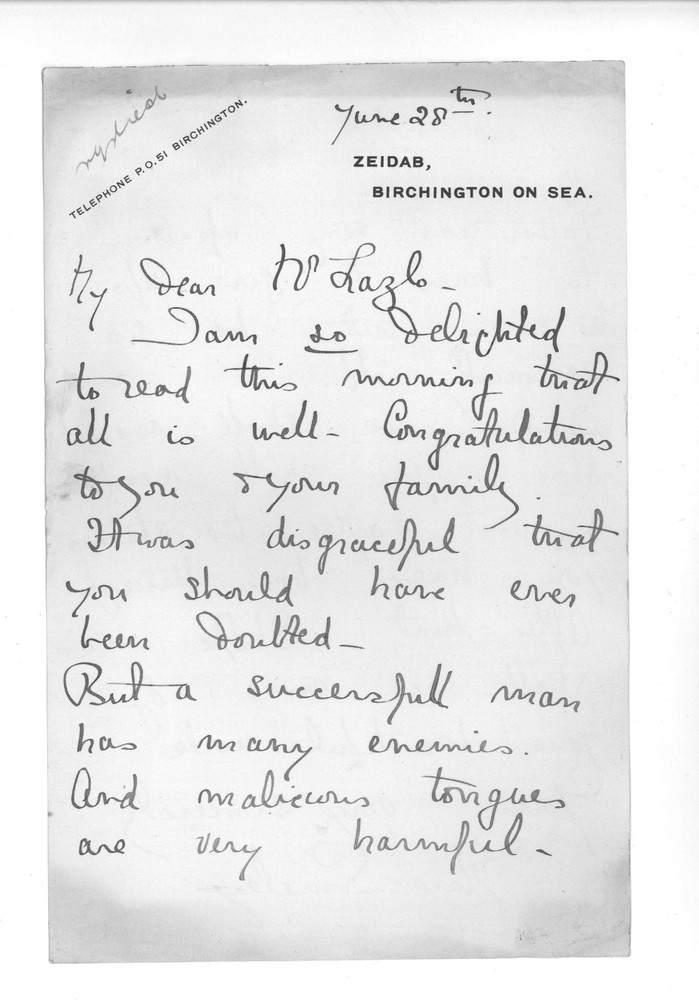 TELEPHONE P.O. 51 BIRCHINGTON.
June 28th.
ZEIDAB,
BIRCHINGTON ON SEA.
My dear Mr Lazlo -
I am so delighted
to read this morning that
all is well - Congratulations
to you & your family.
It was disgraceful that
you should have ever
been doubted -
But a successfull man
has many enemies.
And malicious tongues
are very harmful -